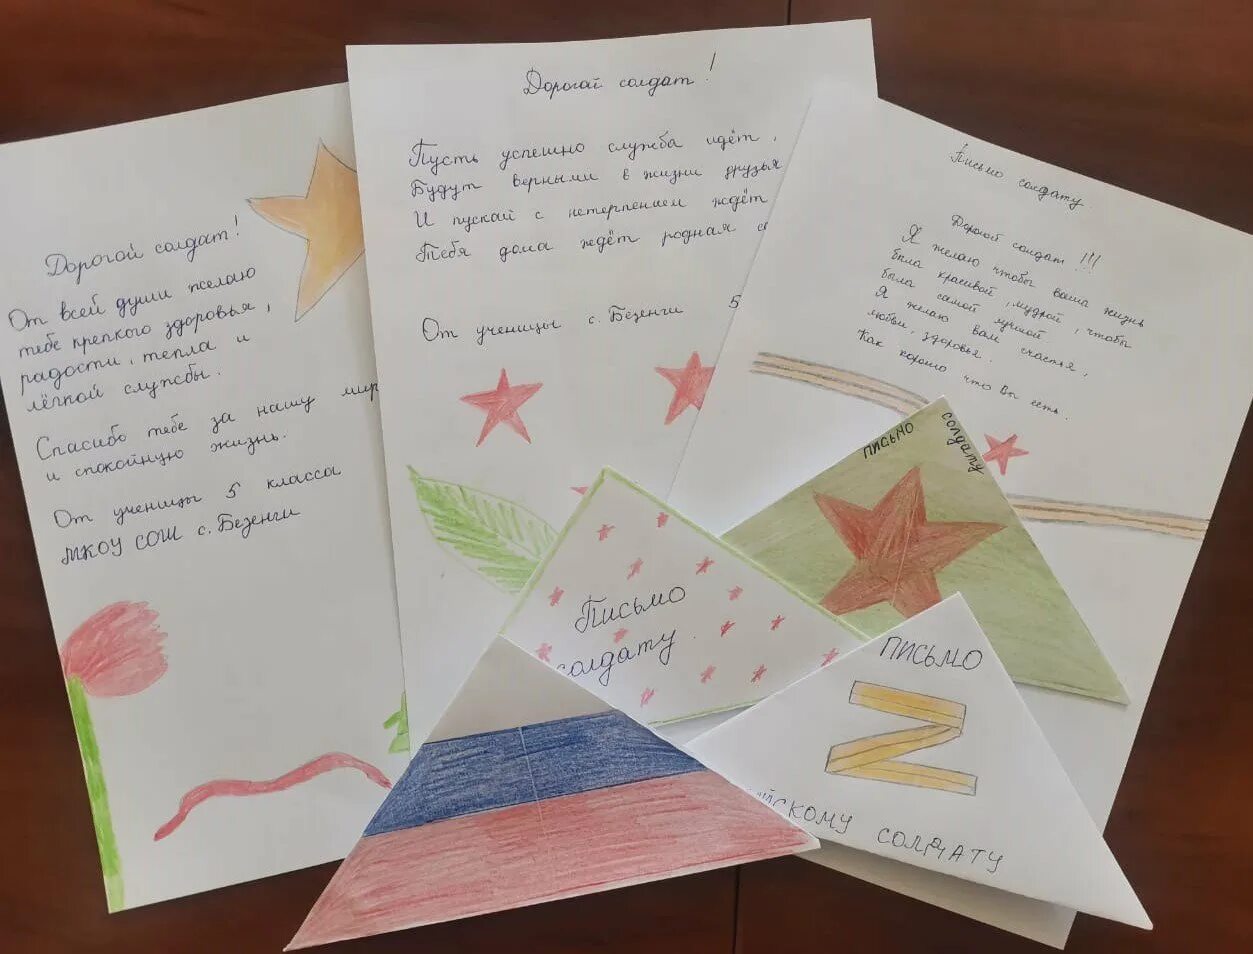 Дорогой солдат!
От всей души желаю
тебе крепкого здоровья,
радости, тепла и
лёгкой службы.
Спасибо тебе за нашу мир
и спокойную жизнь.
От ученицы 5 класса
МКОУ СОШ с. Безенги
Дорогой солдат!
Пусть успешно служба идёт,
Будут верными в жизни друзья
И пускай с нетерпением ждёт
Тебя дома ждёт родная
От ученицы с. Безенги 5
Письмо солдату.
Дорогой солдат!!!
Я желаю чтобы ваша жизнь
была красивой, мудрой, чтобы
была самой лучшей.
Я желаю вам счастья,
любви, здоровья.
Как хорошо что Вы есть.
ПИСЬМО
солдату
Письмо
солдату.
ПИСЬМО
СКОМУ СОЛДАТУ